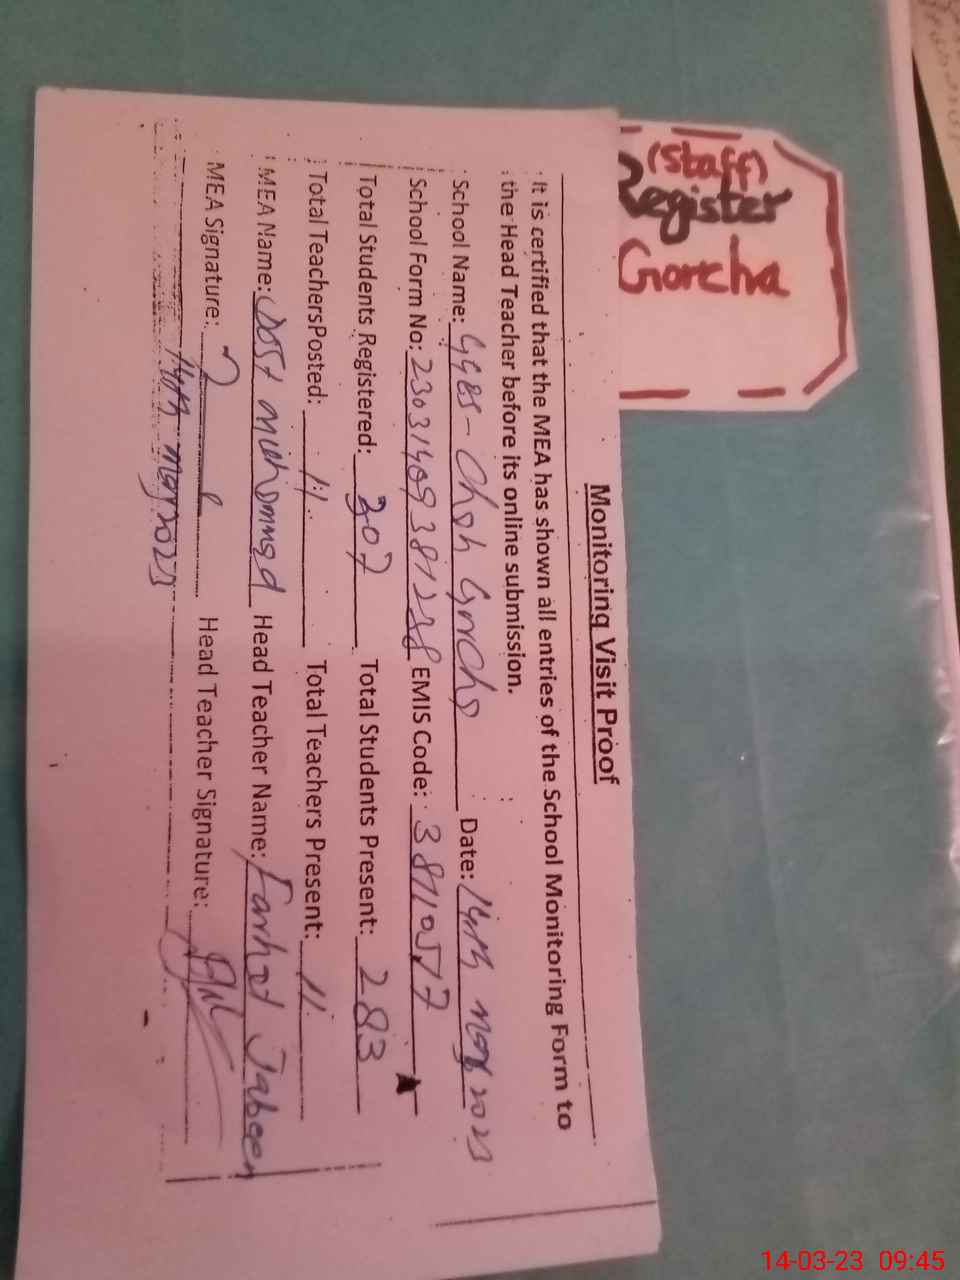 (Staff)
Register
Gorcha
Monitoring Visit Proof
It is certified that the MEA has shown all entries of the School Monitoring Form to
the Head Teacher before its online submission.
School Name: GGES - Chah Gorcha Date: 14th Mar 2023
School Form No: EMIS Code: 38110577
Total Students Registered: 307 Total Students Present: 283
Total TeachersPosted: 11 Total Teachers Present: 11
MEA Name: Dost Muhammad Head Teacher Name: Farhat Jabeen
MEA Signature: Head Teacher Signature:
14th Mar 2023
14-03-23 09:45